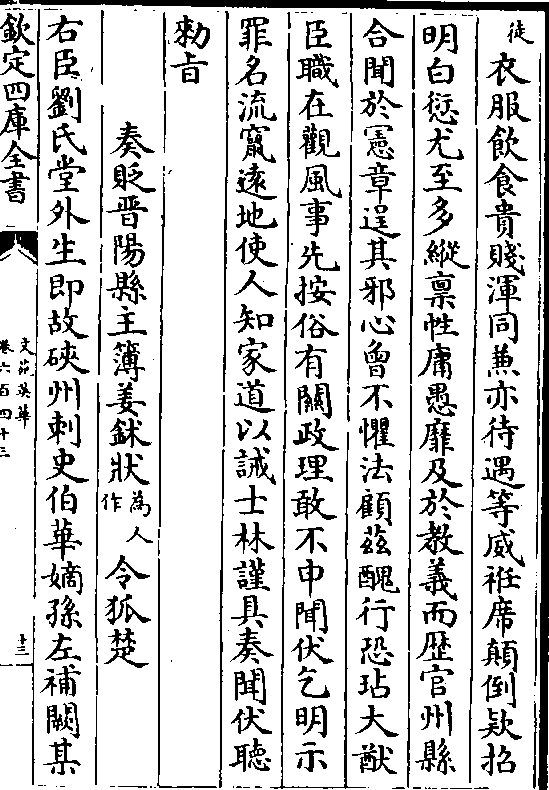 徒衣服飲食貴賤渾同蒸亦待遇等威袵席顛倒欵招
明白愆尤至多縱稟性庸愚靡及於教義而歴官州縣
合聞於憲章逞其邪心曾不懼法顧兹醜行恐玷大猷
臣職在觀風事先按俗有關政理敢不申聞伏乞明示
罪名流竄逺地使人知家道以誡士林謹具奏聞伏聽
勅㫖
奏貶晉陽縣主簿姜鉥狀為人作令狐楚
右臣劉氏堂外生即故硤州刺史伯華嫡孫左補闕某
欽定四庫全書
文苑英華
卷六百四十三
十三